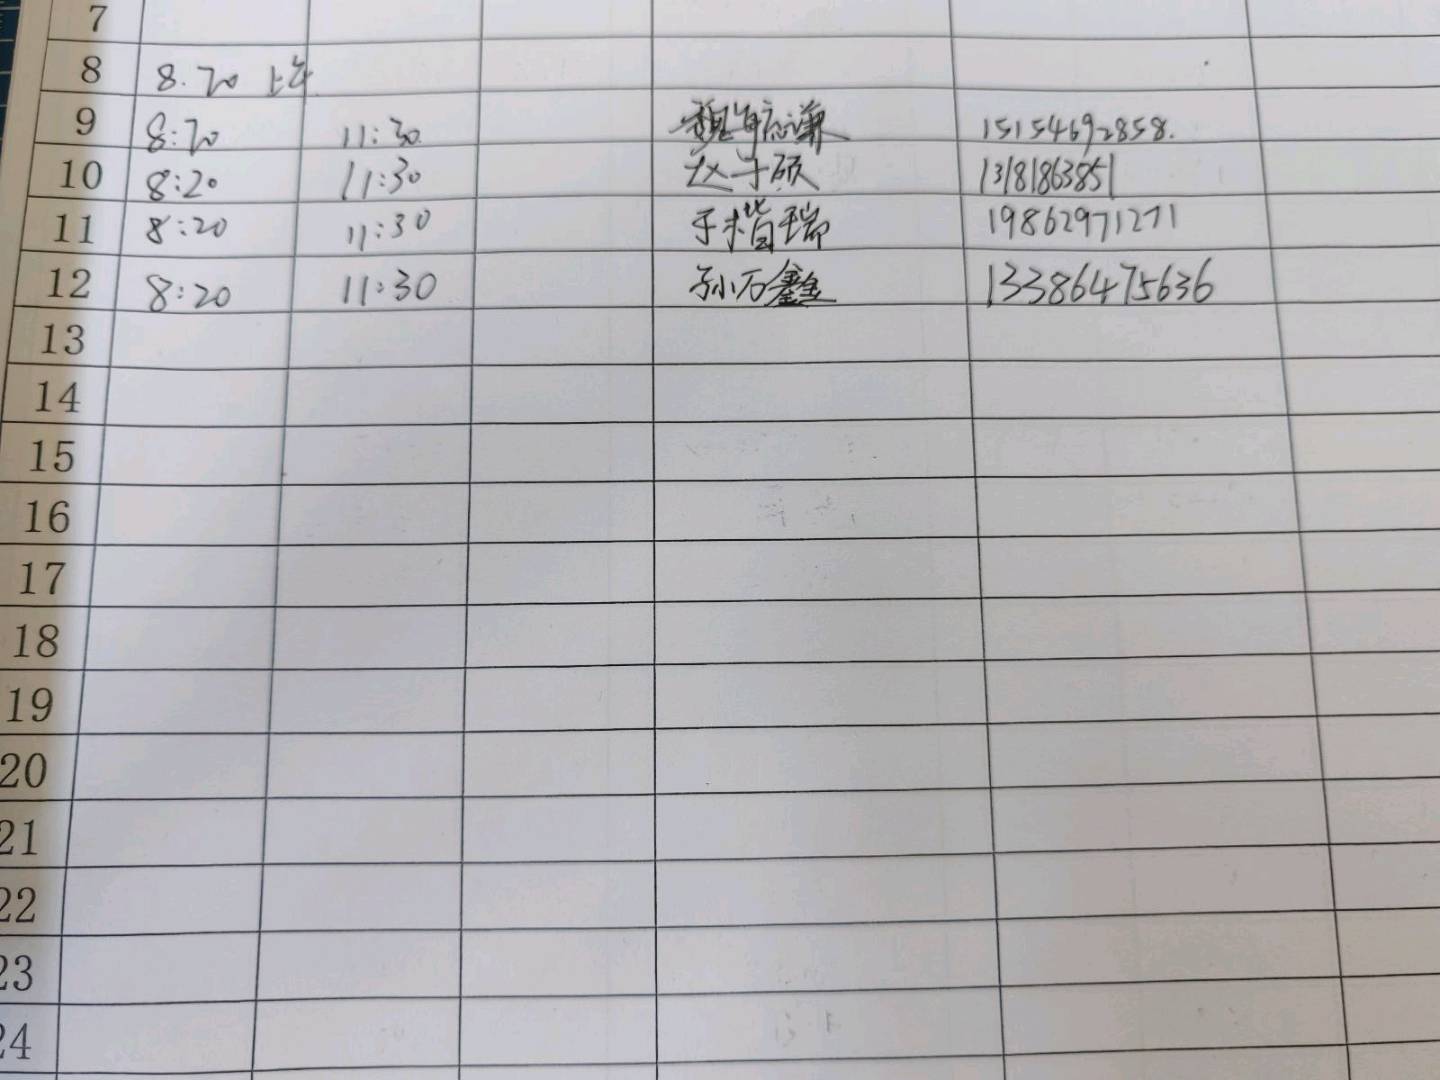 7
8 8.20 上午
9 8:20 11:30 15154692858.
10 8:20 11:30 赵子硕 13181863851
11 8:20 11:30 于楷瑞 19862971271
12 8:20 11:30 孙石鑫 13386475636
13
14
15
16
17
18
19
20
21
22
23
24